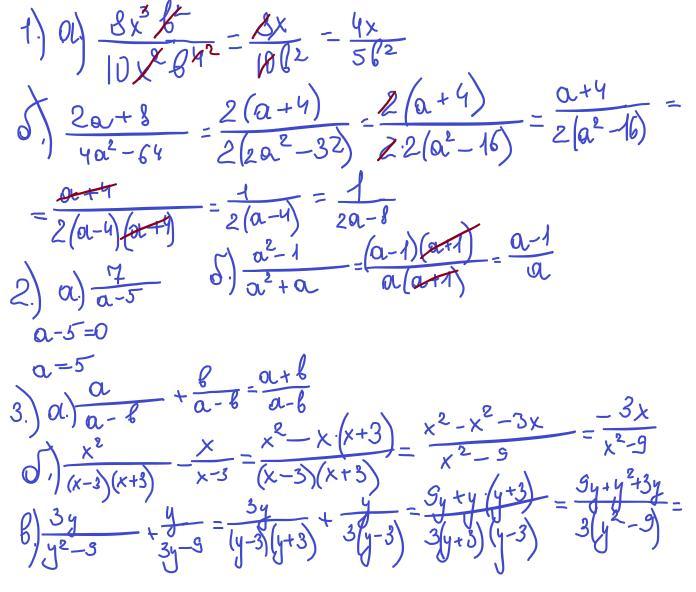 1.) а) 8x³b²/10x²b⁴² = 8x/10b² = 4x/5b²
б.) 2a+8/4a²-64 = 2(a+4)/2(2a²-32) = 2(a+4)/2·2(a²-16) = a+4/2(a²-16) =
= a+4/2(a-4)(a+4) = 1/2(a-4) = 1/2a-8
2.) а.) 7/a-5 б.) a²-1/a²+a = (a-1)(a+1)/a(a+1) = a-1/a
a-5=0
a=5
3.) а.) a/a-b + b/a-b = a+b/a-b
б.) x²/(x-3)(x+3) - x/x-3 = x²-x·(x+3)/(x-3)(x+3) = x²-x²-3x/x²-9 = -3x/x²-9
в.) 3y/y²-9 + y/3y-9 = 3y/(y-3)(y+3) + y/3(y-3) = 9y+y·(y+3)/3(y+3)(y-3) = 9y+y²+3y/3(y²-9) =